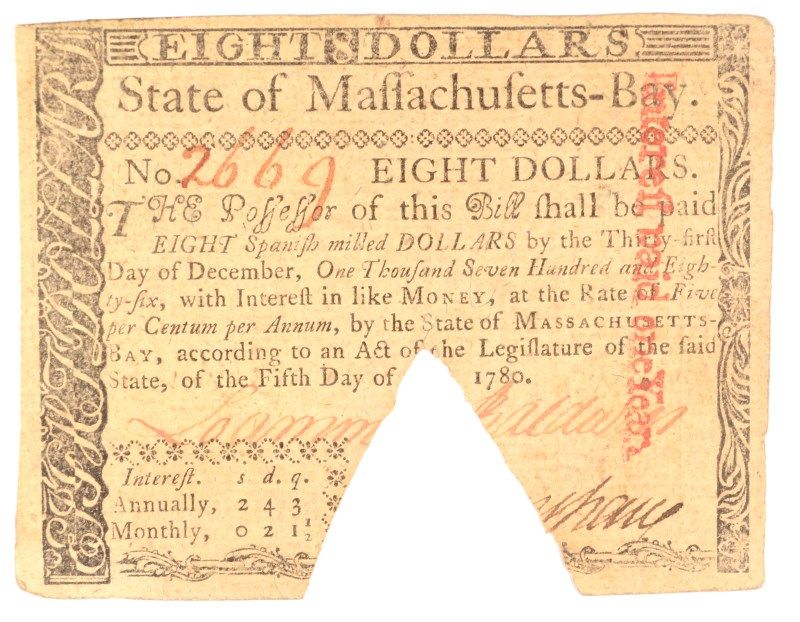 EIGHT 8 DOLLARS
State of Maſſachuſetts-Bay.
No. 2669 EIGHT DOLLARS.
THE Poſſeſſor of this Bill ſhall be paid
EIGHT Spaniſh milled DOLLARS by the Thirty-firſt
Day of December, One Thouſand Seven Hundred and Eigh-
ty-ſix, with Intereſt in like MONEY, at the Rate of Five
per Centum per Annum, by the State of MASSACHUSETTS-
BAY, according to an Act of the Legiſlature of the ſaid
State, of the Fifth Day of 1780.
Intereſt. s d. q.
Annually, 2 4 3
Monthly, 0 2 1½
EIGHT DOLLARS
Intereſt paid one Year.